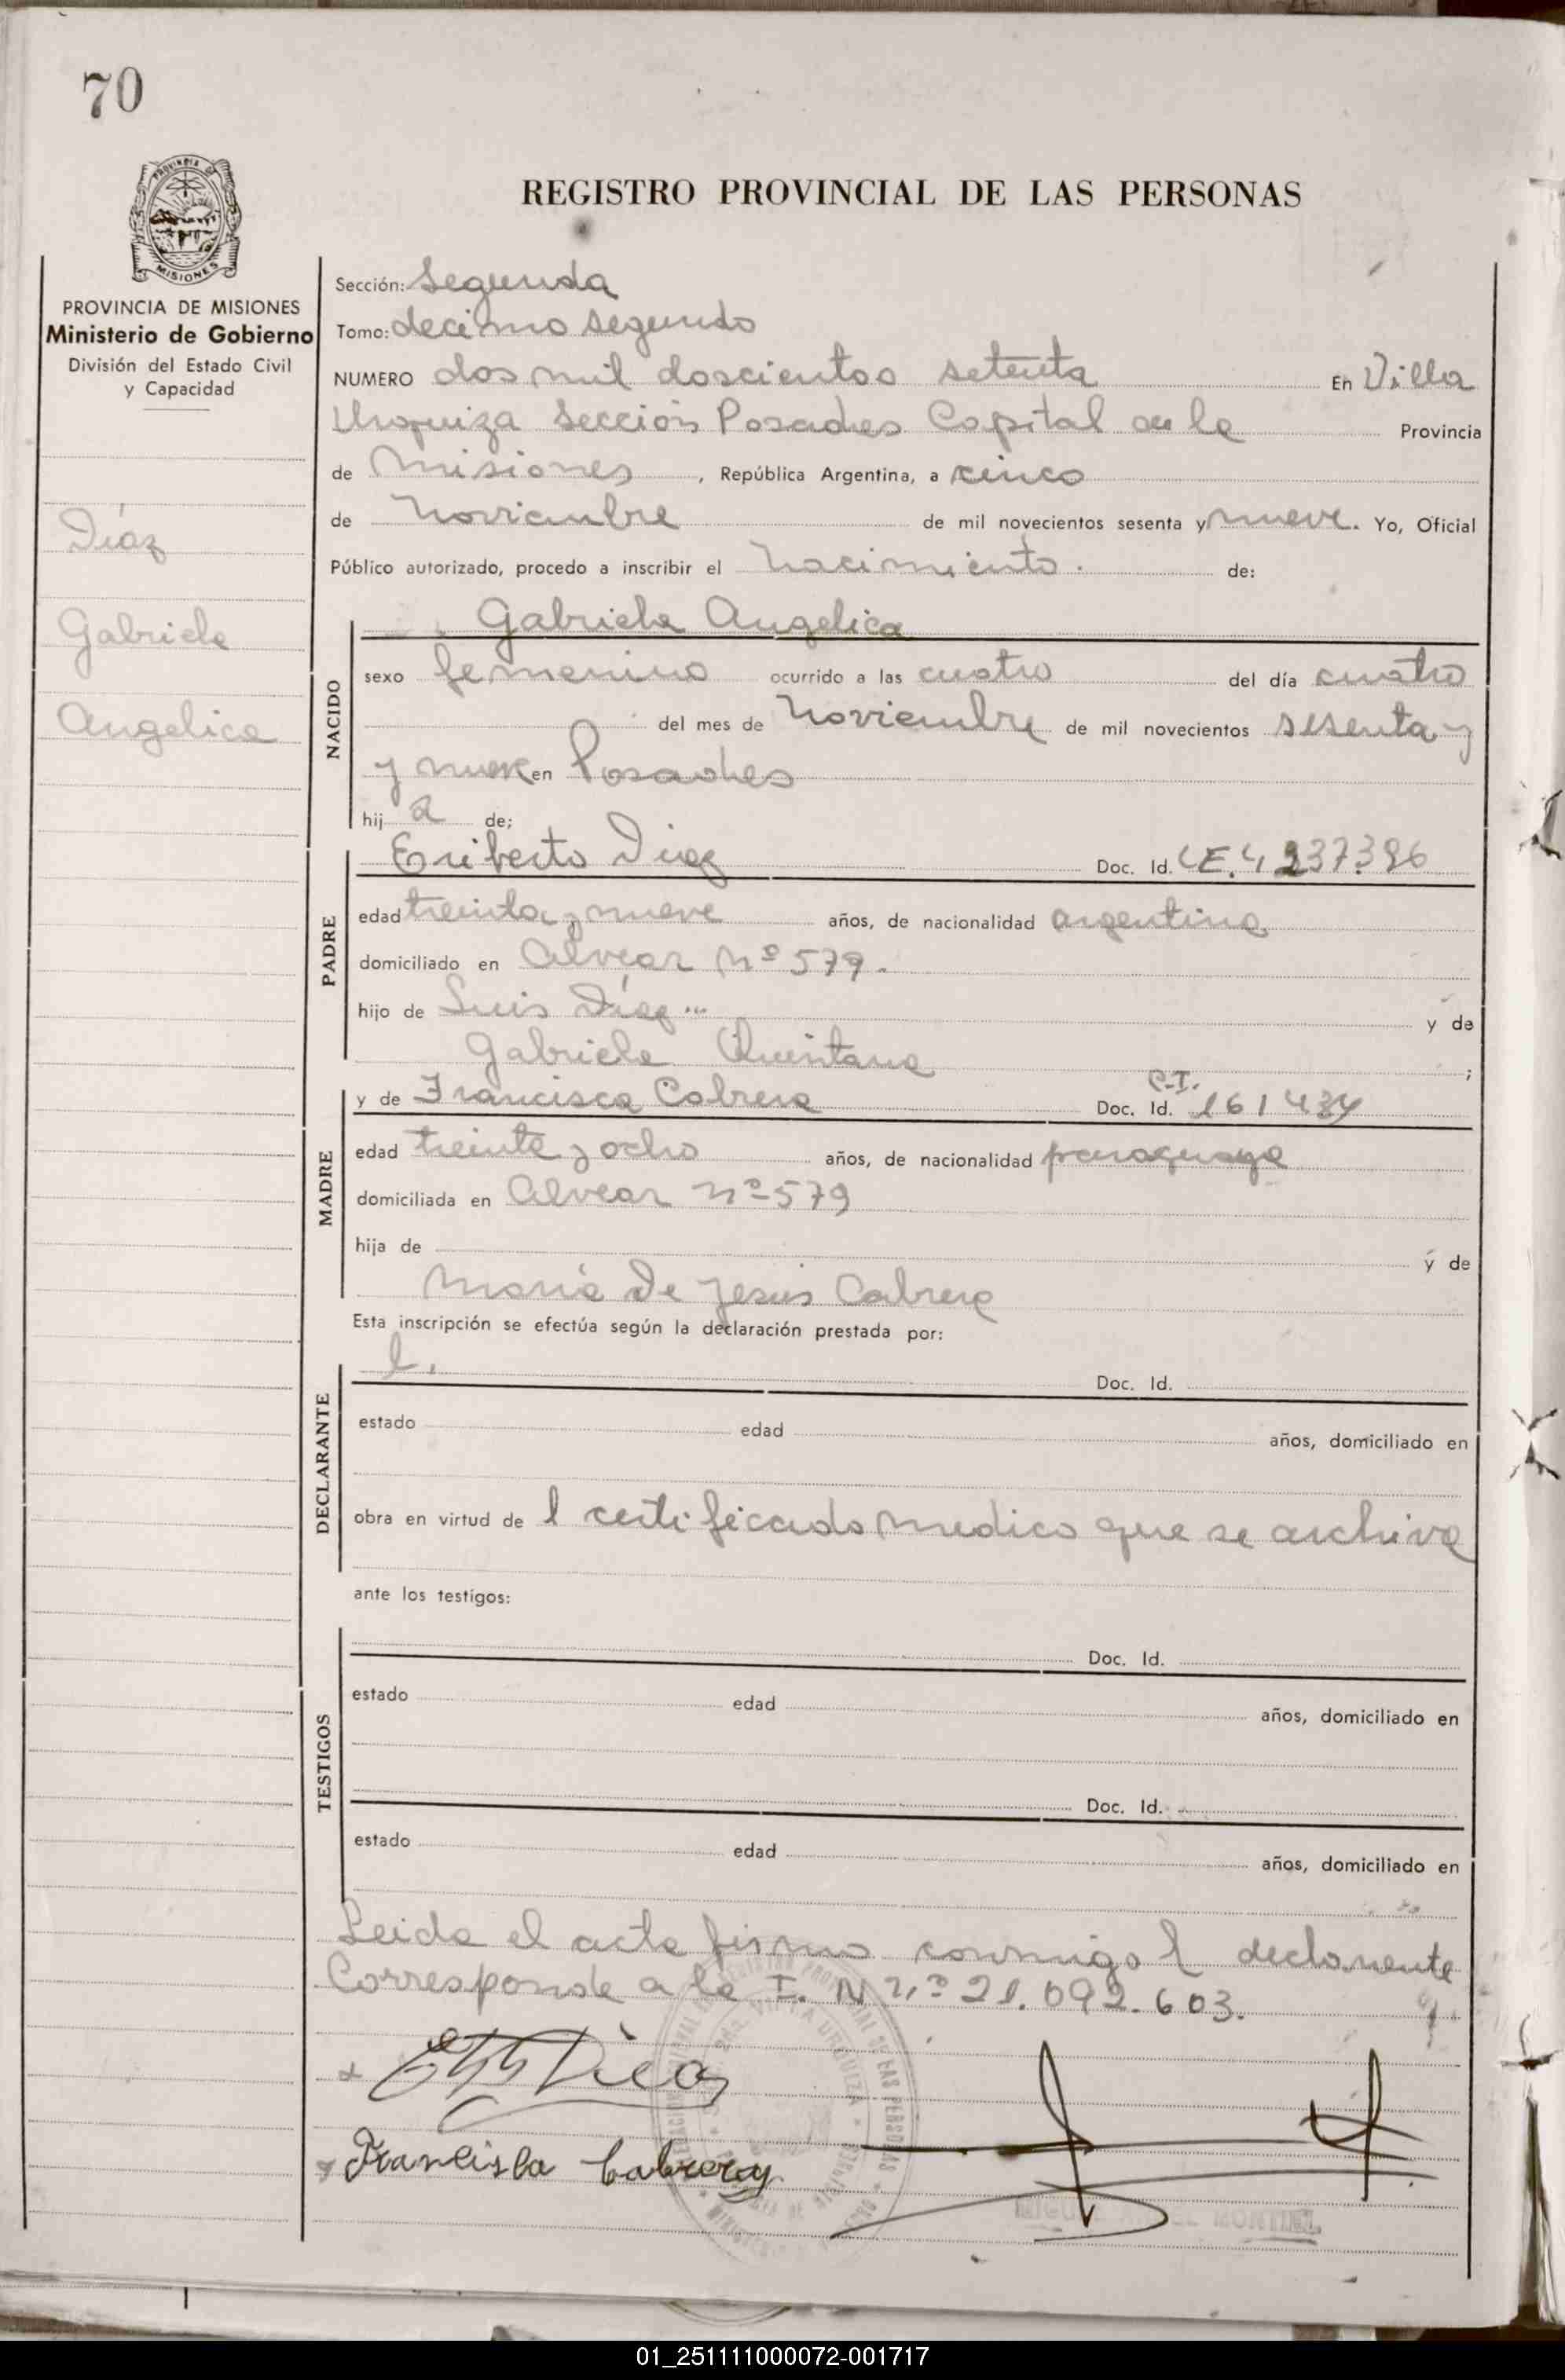 70
PROVINCIA DE MISIONES
MISIONES
PROVINCIA DE MISIONES
Ministerio de Gobierno
División del Estado Civil
y Capacidad
Díaz
Gabriela
Angelica
REGISTRO PROVINCIAL DE LAS PERSONAS
Sección: Segunda
Tomo: decimo segundo
NUMERO dos mil doscientos setenta En Villa
Urquiza Sección Posadas Capital de la Provincia
de Misiones, República Argentina, a cinco
de Noviembre de mil novecientos sesenta y nueve. Yo, Oficial
Público autorizado, procedo a inscribir el Nacimiento. de:
NACIDO
Gabriela Angelica
sexo femenino ocurrido a las cuatro del día cuatro
del mes de Noviembre de mil novecientos sesenta y
y nueve en Posadas
hij a de;
PADRE
Eriberto Diaz Doc. Id. LE. 4237.386
edad treinta y nueve años, de nacionalidad argentina
domiciliado en Alvear Nº 579.
hijo de Luis Díaz y de
Gabriela Quintana ;
MADRE
y de Francisca Cabrera Doc. Id. C.I. 161434
edad treinta y ocho años, de nacionalidad paraguaya
domiciliada en Alvear nº 579
hija de y de
María De Jesús Cabrera
Esta inscripción se efectúa según la declaración prestada por:
DECLARANTE
l. Doc. Id.
estado edad años, domiciliado en
obra en virtud de l certificado medico que se archiva
ante los testigos:
TESTIGOS
Doc. Id.
estado edad años, domiciliado en
Doc. Id.
estado edad años, domiciliado en
Leida el acta firma conmigo l declarante
Corresponde a la I. N nº 21.092.603.
Díaz
Francisca Cabrera
MIGUEL ANGEL MONTIEL
01_251111000072-001717